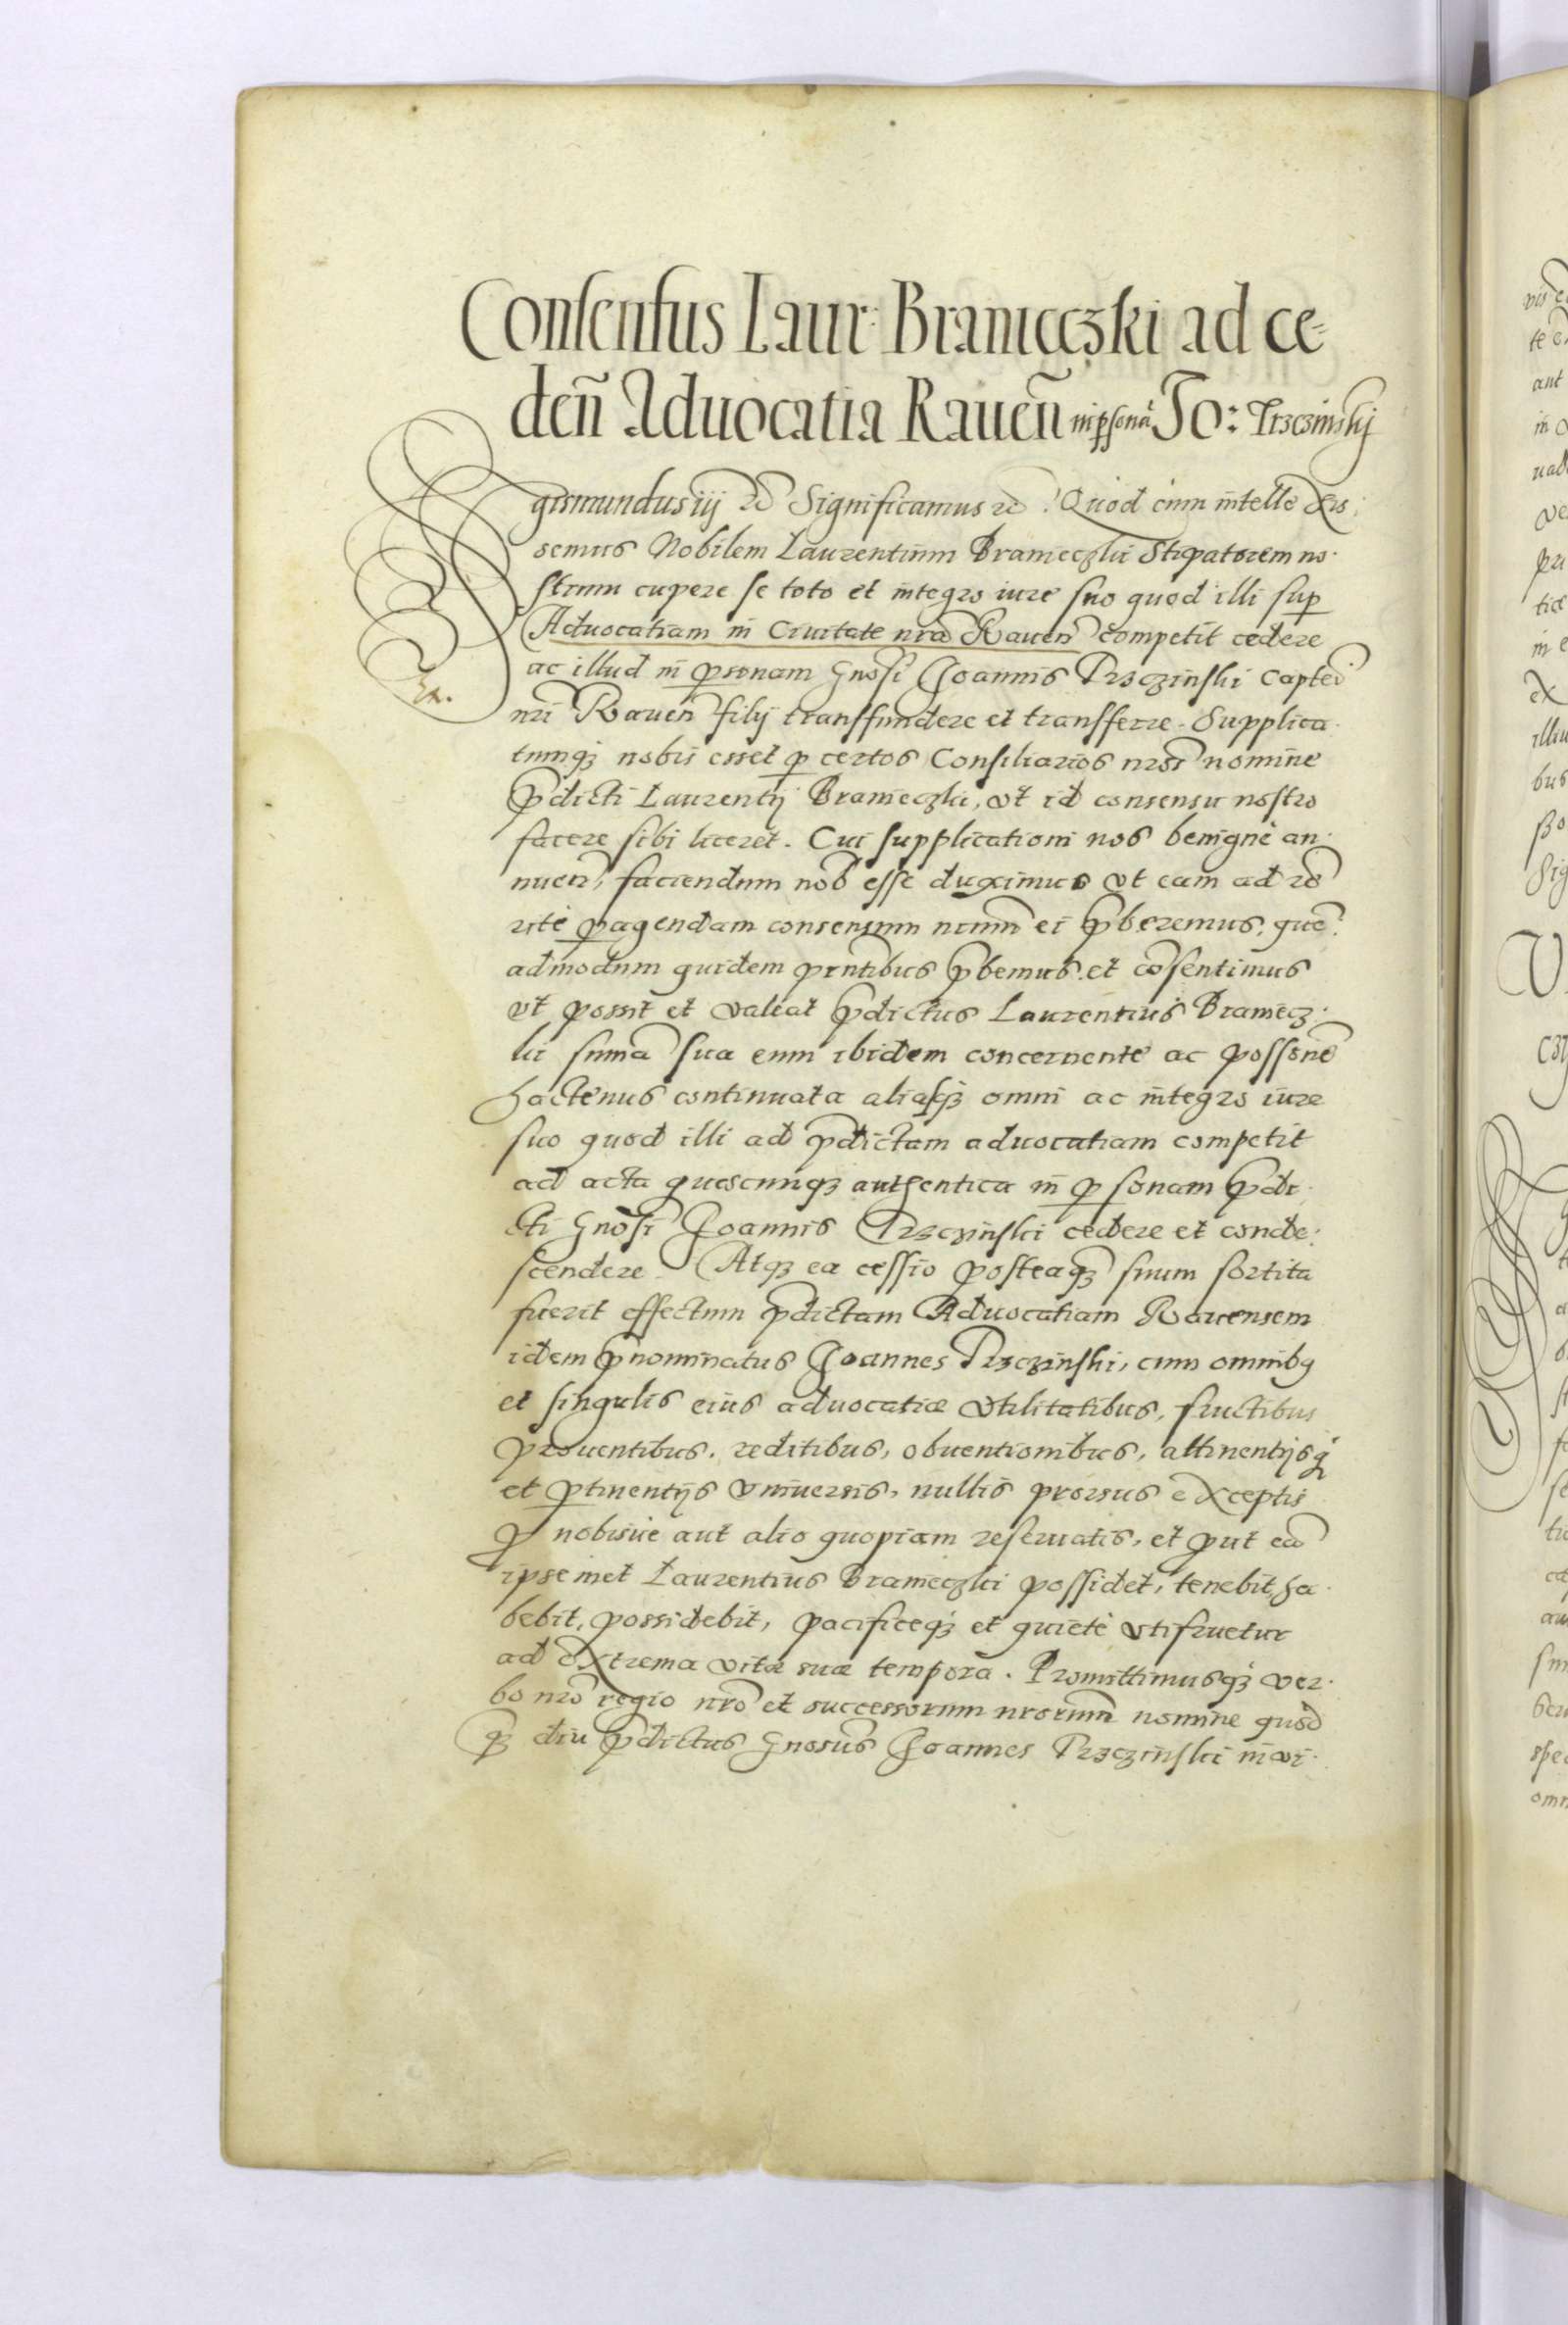 Consensus Laur: Branieczki ad ce=
den̄ Aduocatia Rauen̄ in psonā Jo: Trzczinskij
Sigismundus iij etc Significamus etc. Quod cum intellexis:
semus Nobilem Laurentium Branieczki Stipatorem no.
strum cupere se toto et integro iure suo quod illi sup
Aduocatiam in Ciuitate nra Rauen competit cedere
ac illud in psonam Gnosi Joannis Trzczinski Captei
nri Rauen filij transffundere et transferre. Supplica.
tumq3 nobis esset p certos Consiliarios nros nomine
pdicti Laurentij Branieczki, vt id consensu nostro
facere sibi liceret. Cui supplicationi nos benignè an.
nuen, faciendum nob esse duximus vt eam ad rē
ritè pagendam consensum nrum ei pberemus, quē.
admodum quidem pntibus pbemus et cōsentimus
vt possit et valeat pdictus Laurentius Braniecz.
ki suma sua eum ibidem concernente ac possone
hactenus continuata aliasq3 omni ac integro iure
suo quod illi ad pdictam aduocatiam competit
ad acta quæcunq3 authentica in psonam pdi.
cti Gnosi Joannis Trzczinski cedere et conde:
scendere. Atq3 ea cessio posteaq3 suum sortita
fuerit effectum pdictam Aduocatiam Rauensem
idem pnominatus Joannes Trzczinski, cum omnibq
et singulis eius aduocatiæ vtilitatibus, fructibus
prouentibus, reditibus, obuentionibus, attinentijsq3
et ptinentijs vniuersis, nullis prorsus exceptis
p nobisue aut alio quopiam reseruatis, et put eā
ipsemet Laurentius Branieczki possidet, tenebit, ha.
bebit, possidebit, pacificeq3 et quietè vtifruetur
ad extrema vitæ suæ tempora. Promittimusq3 ver.
bo nro regio nro et successorum nrorum nomine quod
q3 diu pdictus Gnosus Joannes Trzczinski in vi.